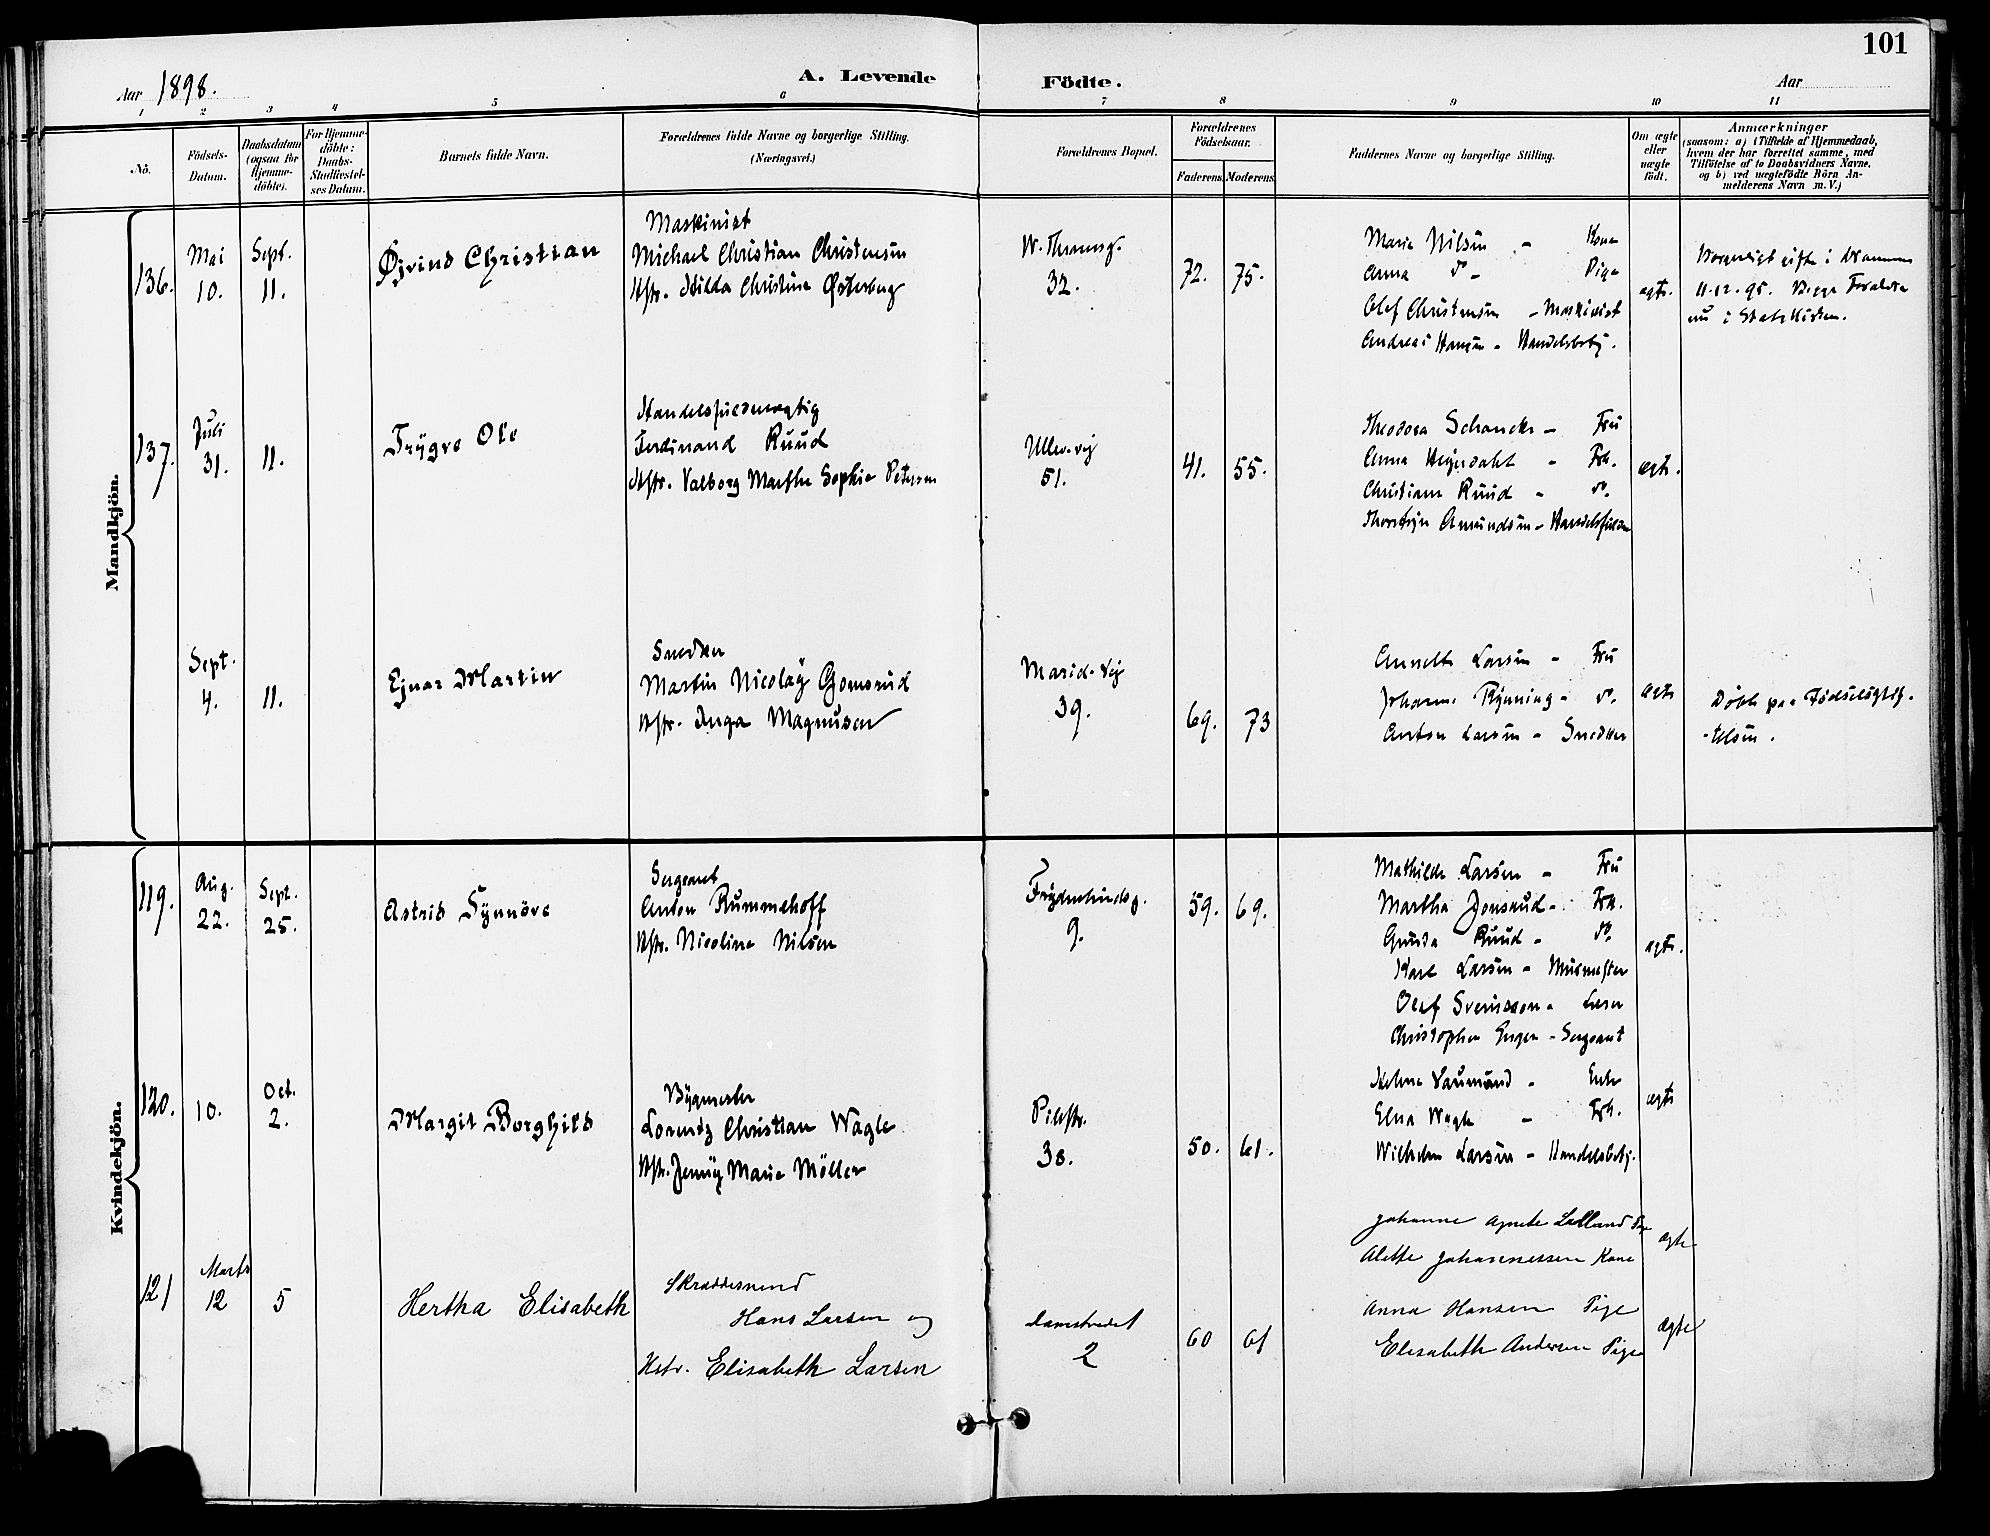 101
Aar 1898.
A. Levende Födte.
Aar
1 2 3 4 5 6 7 8 9 10 11
No.
Födsels-Datum.
Daabsdatum (ogsaa for Hjemme-döbte).
For Hjemme-döbte: Daabs-Stadfæstel-ses Datum.
Barnets fulde Navn.
Forældrenes fulde Navne og borgerlige Stilling. (Næringsvei.)
Forældrenes Bopæl.
Forældrenes Födselsaar.
Faderens. Moderens.
Faddernes Navne og borgerlige Stilling.
Om ægte eller uægte födt.
Anmærkninger
(saasom: a) i Tilfælde af Hjemmedaab,
hvem der har forrettet samme, med
Tilföielse af to Daabsvidners Navne,
og b) ved uægtefödte Börn An-
melderens Navn m. V.)
Mandkjön.
136. Mai 10. Sept. 11.
Øjvind Christian
Maskinist
Michael Christian Christensen
Hstr. Hilda Christine Østerberg
W. Thranesg.
32.
72. 75.
Marie Nilsen - Kone
Anna do - Pige
Olef Christensen - Maskinist
Andreas Hansen - Handelsbetj.
ægte.
Borgerligt gift i Drammen
11-12-95. Begge Forældre
nu i Statskirken.
137. Juli 31. 11.
Trygve Ole
Handelsfuldmægtig
Ferdinand Ruud
Hstr. Valborg Marthe Sophie Petersen
Ullev.vej
51.
41. 55.
Theodora Schancke - Fru
Anna - Frk.
Christiane Ruud - do.
Amundsen - Handelsfuldm
ægte.
Sept. 4. 11.
Ejnar Martin
Snedker
Martin Nicolay Gomsrud
Hstr. Inga Magnusen
Marid.vej
39.
69. 73
Annette Larsen - Fru
Johanne Rynning - do.
Anton Larsen - Snedker
ægte
Døbt paa Fødselsstif-
telsen.
Kvindekjön.
119. Aug. 22. Sept. 25.
Astrid Synnöve
Sergeant
Anton Rummelhoff
Hstr. Nicoline Nilsen
Frydenlundsg.
9.
59. 69.
Mathilde Larsen - Fru
Martha Jonsrud - Frk.
Gunda Ruud - do.
Karl Larsen - Murmester
Olaf Svensson -
Christopher - Sergeant
ægte.
120. 10. Oct. 2.
Margit Borghild
Bygmester
Lorentz Christian Wagle
Hstr. Jenny Marie Möller
Pilestr.
38.
50. 61.
Helene - Enke
Elna Wagle - Frk.
Wilhelm Larsen - Handelsbetj.
ægte
121 Marts 12 5
Hertha Elisabeth
Skræddersvend
Hans Larsen og
Hstr. Elisabeth Larsen
Damstredet
2
60 61
Johanne Agnete Lolland Pige
Alette Johannessen Kone
ægte
Anna Hansen Pige
Elisabeth Andersen Pige
ægte